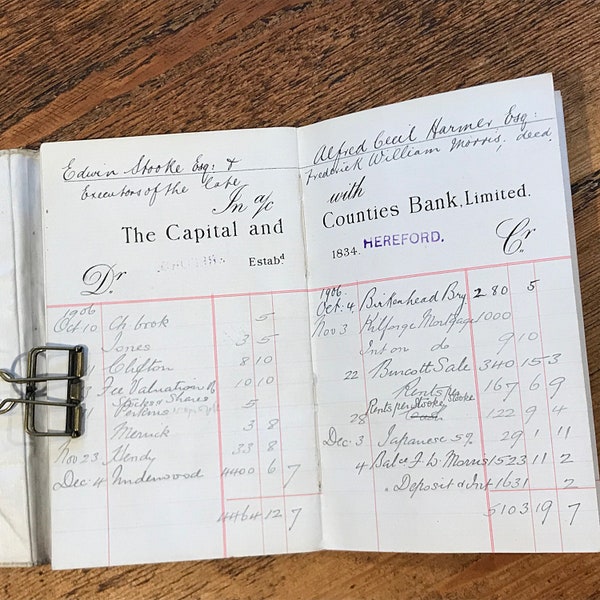 Edwin Stooke Esq: &
Executors of the late
In a/c
The Capital and
Estabd
Dr
1906
Oct 10 Ch book 5
Jones 3 5
Clifton 8 10
Fee Valuation of 10 10
Stocks & Shares
Perkins 5
Merrick 3 8
Nov 23 Wendy 33 8
Dec 4 Underwood 4400 6 7
4464 12 7
Alfred Cecil Harmer Esq:
Frederick William Morris. decd.
with
Counties Bank, Limited.
1834. HEREFORD. Cr
1906
Oct. 4 Birkenhead Bry 280 5
Nov 3 Kilforge Mortgage 1000
Int on do 9 10
22 Burcott Sale 340 15 3
Rents per Stooke 167 6 9
28 Rents per Stooke 122 9 4
Dec. 3 Japanese 5% 29 1 11
4 Bal of F. W. Morris 1523 11 2
Deposit & Int 1631 2
5103 19 7